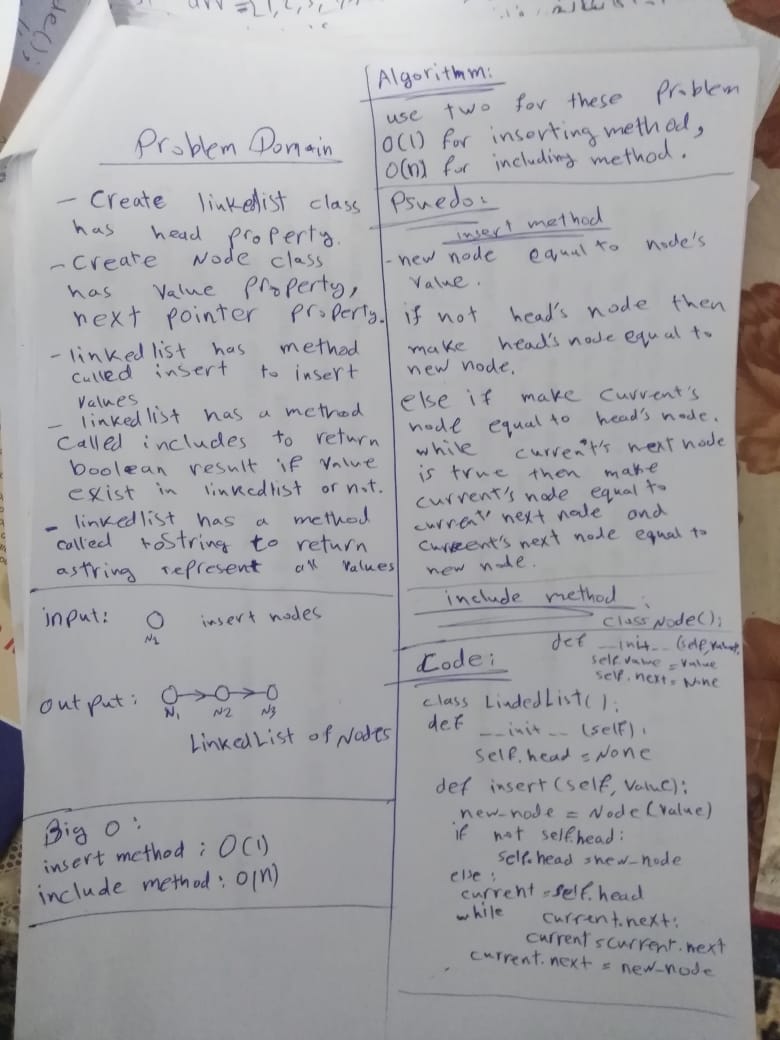 Problem Domain
- Create linkedlist class
has head property.
- Create Node class
has value property,
next pointer property.
- linkedlist has method
called insert to insert
values
- linkedlist has a method
called includes to return
boolean result if value
exist in linkedlist or not.
- linkedlist has a method
called toString to return
astring represent all values
input: N1 insert nodes
output: N1 N2 N3
LinkedList of Nodes
Big O:
insert method : O(1)
include method : O(n)
Algorithm:
use two for these problem
O(1) for inserting method,
O(n) for including method.
Psuedo:
insert method
- new node equal to node's
value.
if not head's node then
make head's node equal to
new node.
else if make current's
node equal to head's node.
while current's next node
is true then make
current's node equal to
current' next node and
current's next node equal to
new node.
include method :
class Node():
def __init__ (self, value):
self.value = value
self.next = None
Code:
class LindedList():
def __init__ (self):
self.head = None
def insert(self, value):
new_node = Node(value)
if not self.head:
self.head = new_node
else:
current = self.head
while current.next:
current = current.next
current.next = new_node